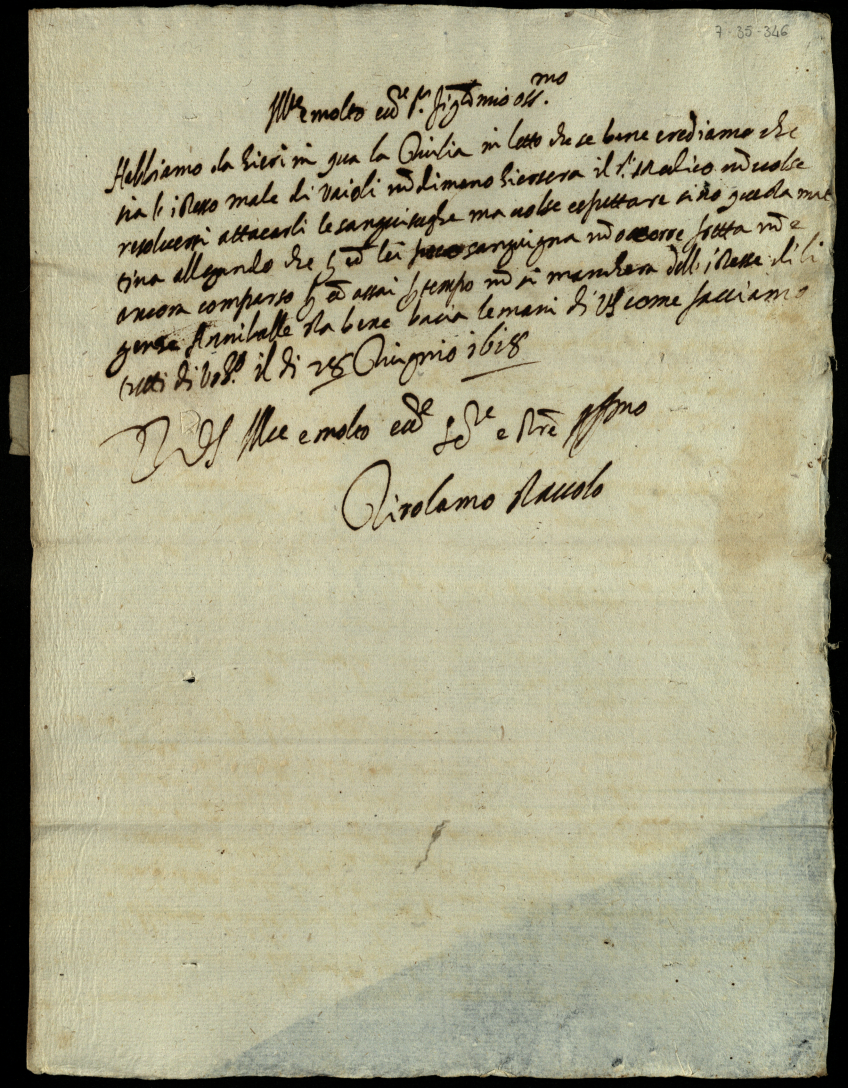 7-35-346
Ill.re e molto ecc.te S.r Sig.r mio oss.mo
Habbiamo da hieri in qua la Giulia in letto che se bene crediamo che
sia l'istesso male di vaioli nō dimeno hiersera il S.r Medico nō volse
resolversi attacarli le sanguisughe ma volse aspettare sino questa mat
tina allegando che lei sanguigna nō occorre fretta nō e
ancora comparso assai tempo nō si manchera dell'istessa dili
genza Annibale sta bene bacia le mani di VS come facciamo
tutti di il di 28 Giugnio 1618
DVS Ill.re e molto ecc.te
Ser.re e
Girolamo